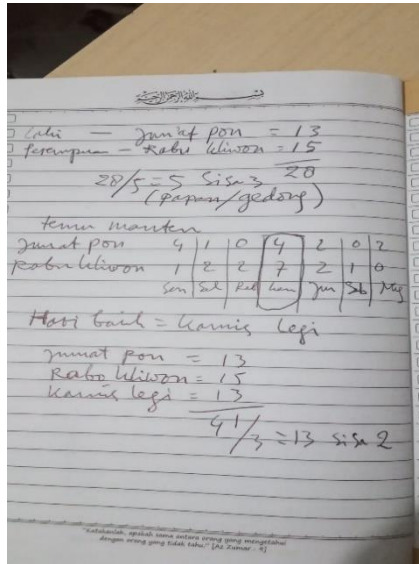 Laki — Jum'at pon = 13
Perempuan — Rabu kliwon = 15
28
28/5 = 5 Sisa 3
(papan/gedong)
temu manten
Jumat pon 4 1 0 4 2 0 2
Rabu kliwon 1 2 2 7 2 1 0
Sen Sel Rab Kam Jum Sb Mg
Hari baik = Kamis legi
Jumat pon = 13
Rabo kliwon = 15
Kamis legi = 13
41/3 = 13 sisa 2
"Katakanlah, apakah sama antara orang yang mengetahui
dengan orang yang tidak tahu." [Az Zumar : 9]